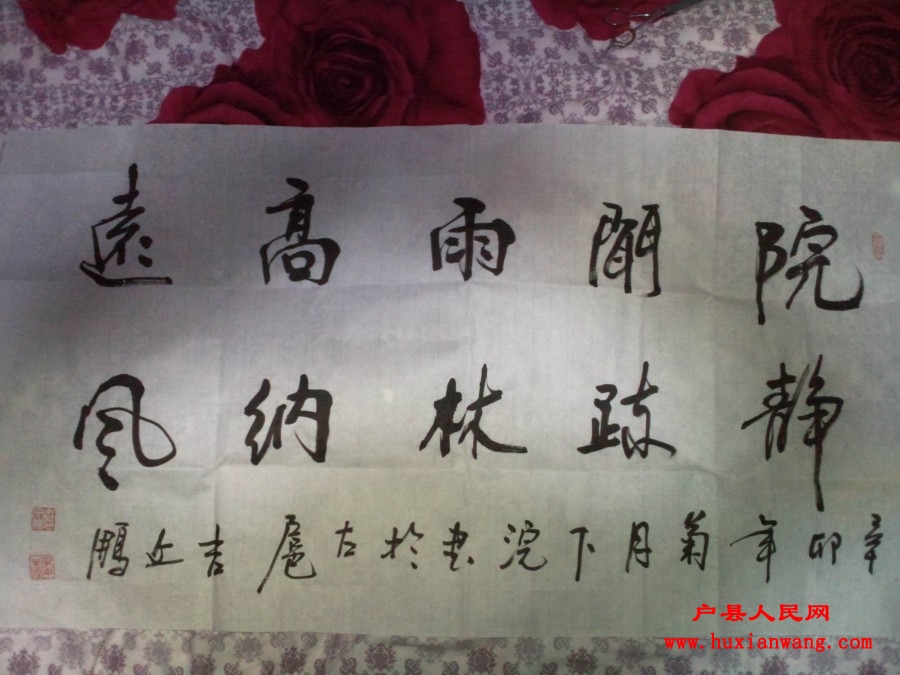 院静
聞疎
雨林
高纳
遠风
辛卯年菊月下浣书於古扈吉近鵬
户县人民网
www.huxianwang.com